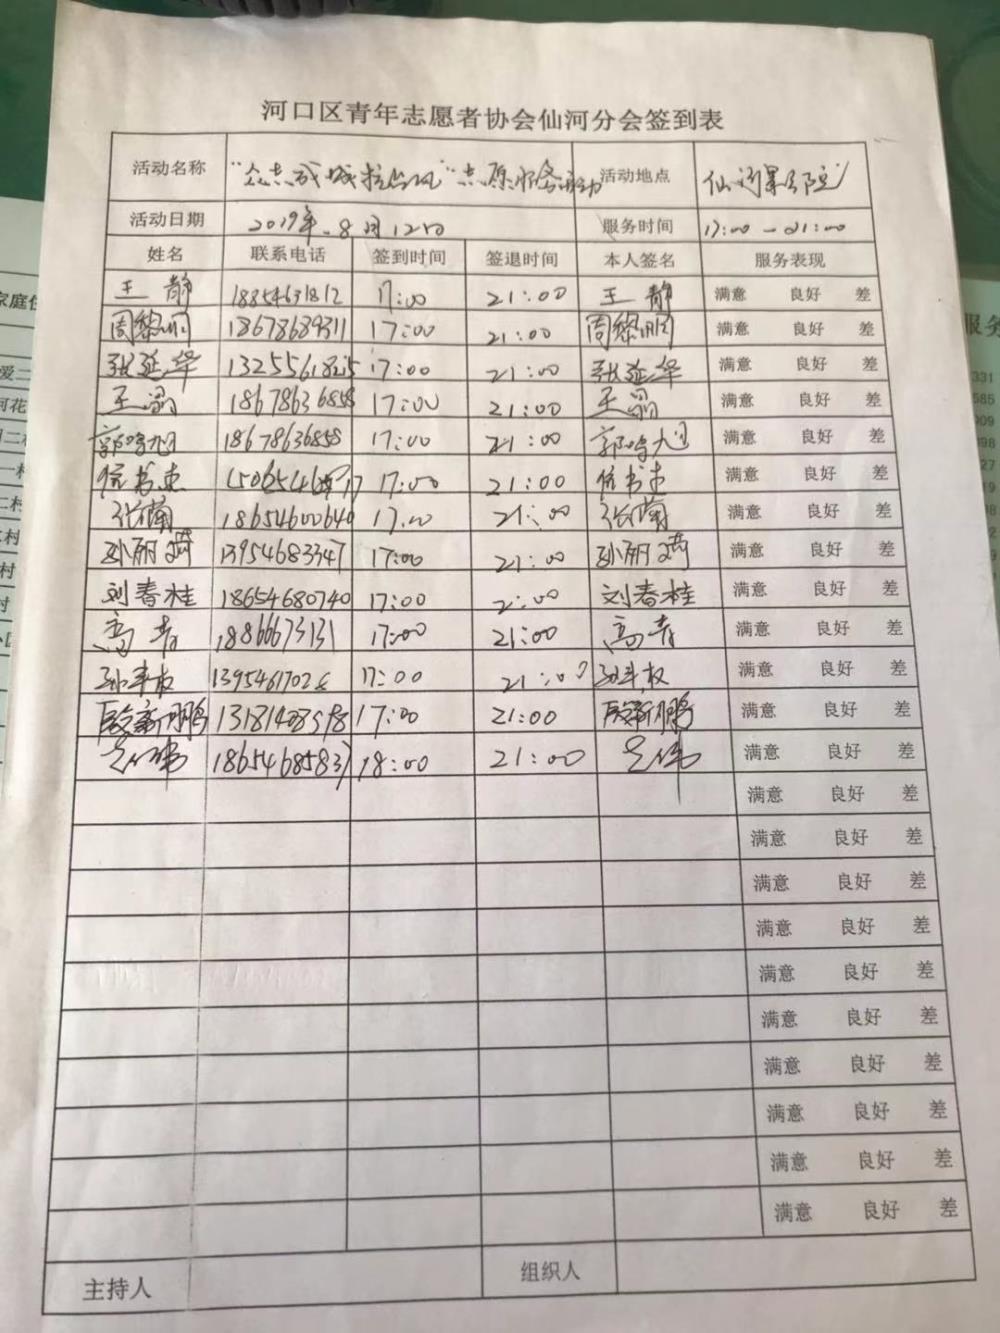 河口区青年志愿者协会仙河分会签到表
活动名称 "众志成城抗台风"志愿服务活动 活动地点 仙河
活动日期 2019年.8月12日 服务时间 17:00-21:00
姓名 联系电话 签到时间 签退时间 本人签名 服务表现
王静 18854631812 17:00 21:00 王静 满意 良好 差
周黎明 18678689311 17:00 21:00 周黎明 满意 良好 差
张延华 17:00 21:00 张延华 满意 良好 差
王晶 18678636858 17:00 21:00 王晶 满意 良好 差
郭鸣旭 18678636858 17:00 21:00 郭鸣旭 满意 良好 差
17:00 21:00 满意 良好 差
张兰 18654600640 17:00 21:00 张兰 满意 良好 差
孙丽 13954683347 17:00 21:00 孙丽 满意 良好 差
刘春桂 18654680740 17:00 21:00 刘春桂 满意 良好 差
高青 18866673131 17:00 21:00 高青 满意 良好 差
17:00 21:00 满意 良好 差
殷新鹏 13181408598 17:00 21:00 殷新鹏 满意 良好 差
18654685837 18:00 21:00 满意 良好 差
满意 良好 差
满意 良好 差
满意 良好 差
满意 良好 差
满意 良好 差
满意 良好 差
满意 良好 差
满意 良好 差
满意 良好 差
满意 良好 差
主持人 组织人